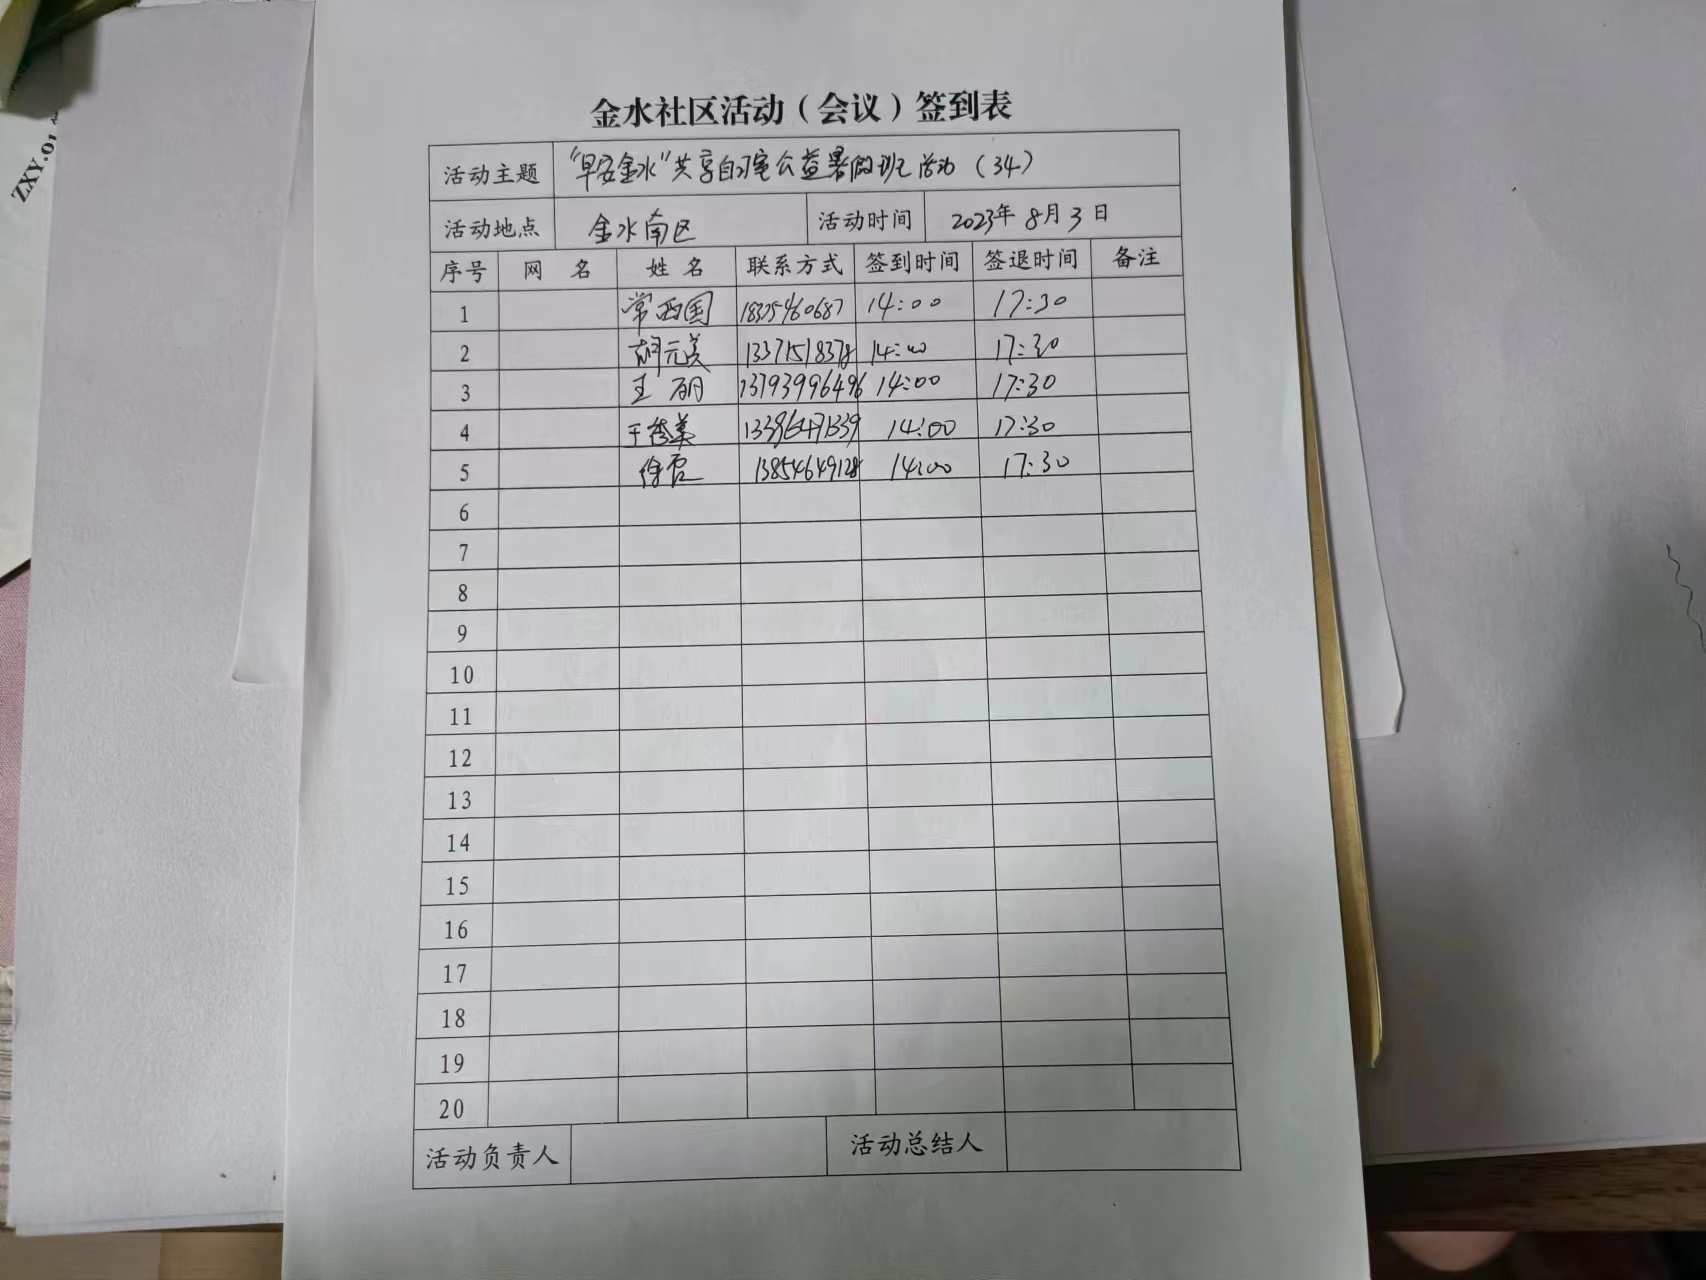 ZXY.01
金水社区活动（会议）签到表
活动主题 “早安金水”共享自习室公益暑假班活动（34）
活动地点 金水南区 活动时间 2023年8月3日
序号 网 名 姓 名 联系方式 签到时间 签退时间 备注
1 常西国 18325460687 14:00 17:30
2 胡元美 13371518378 14:00 17:30
3 王丽 13793996496 14:00 17:30
4 于秀美 14:00 17:30
5 徐霞 13854649128 14:00 17:30
6
7
8
9
10
11
12
13
14
15
16
17
18
19
20
活动负责人 活动总结人